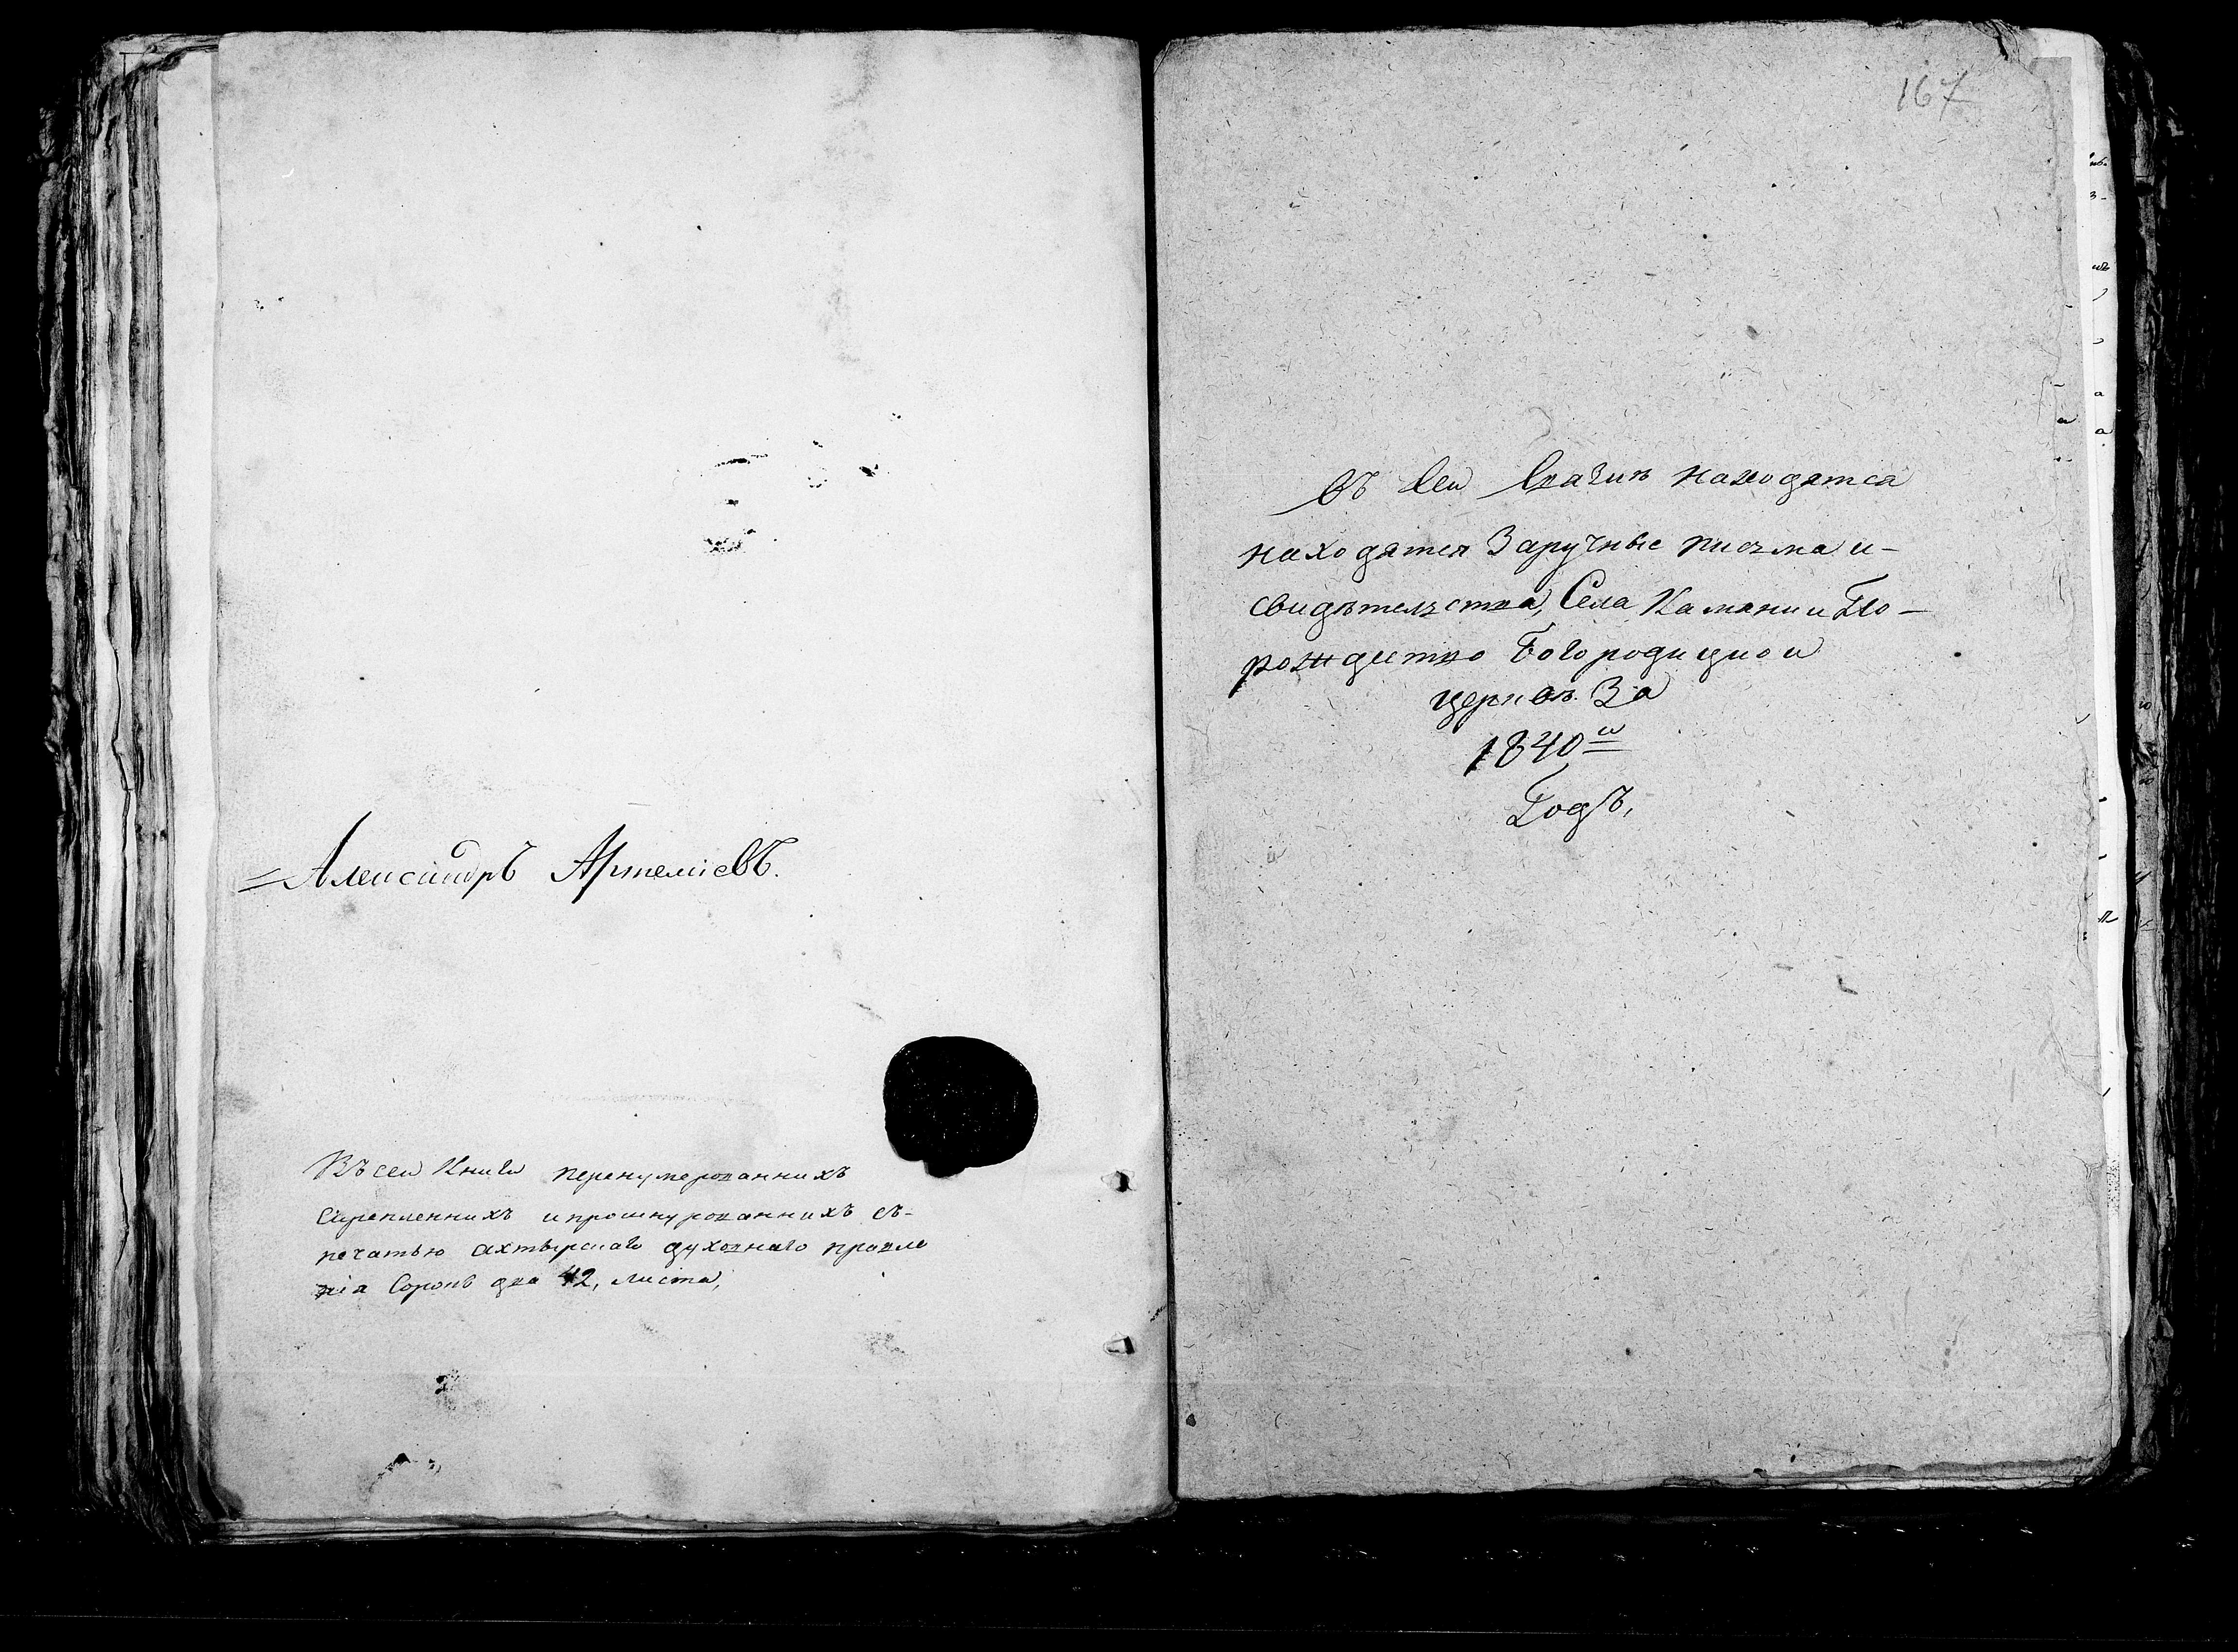 =Александръ Артеміевъ.
Въ сеи Книги перенумерованнихъ
Скрепленнихъ ипрошнурованнихъ съ-
печатью ахтырскаго духовнаго правле
нія Сорокъ два 42, листа,
167
Въ Сеи Связик находятса
находятся Заручные писма и-
свидѣтельства, Села Камяни и По-
рождество Богородицнои
церквѣ За
1840й
Годъ,